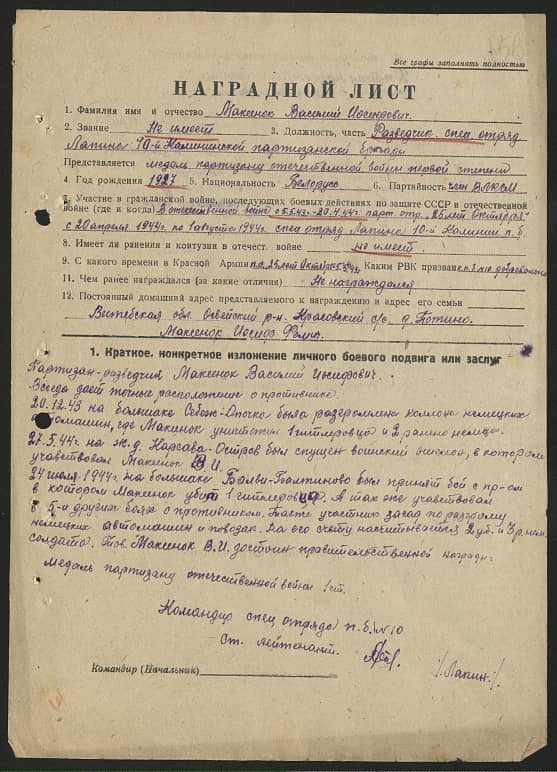 Все графы заполнять полностью
НАГРАДНОЙ ЛИСТ
1. Фамилия имя и отчество Максенок Василий Иосифович.
2. Звание Не имеет 3. Должность, часть Разведчик спец. отряд
Лапино 10-й Калининской партизанской бригады
Представляется медаль партизану отечественной войны первой степени
4. Год рождения 1927 5. Национальность Белорусс 6. Партийность член ВЛКСМ
7. Участие в гражданской войне, последующих боевых действиях по защите СССР и отечественной
войне (где и когда) В отечественной войне с 5.5.43-20.4.44г. парт. отр. "25 лет Октября"
с 20 апреля 1944г. по 1 августа 1944г. спец отряд Лапино 10-й Калинин п.б.
8. Имеет ли ранения и контузии в отечест. войне не имеет
9. С какого времени в Красной Армии п.о. 25 лет Октября Каким РВК призван
11. Чем ранее награждался (за какие отличия) Не награждался
12. Постоянный домашний адрес представляемого к награждению и адрес его семьи
Витебская обл. Освейский р-н. с/с. д.
Максенок Иосиф
1. Краткое, конкретное изложение личного боевого подвига или заслуг
Партизан-разведчик Максенок Василий Иосифович.
Всегда дает точные расположение о противнике.
20.12.43 на большаке Себеж-Опочко была разгромлена колона немецких
автомашин, где Макинок уничтожил 1 гитлеровца и 2 ранено немца.
27.5.44г. на ж.д. Карсава-Остров был спущен воинский эшелон, в котором
учавствовал Макенок В.И.
24 июля 1944г. на большаке Балви-Балтиново был принят бой с пр-ом
в котором Максенок убит 1 гитлеровца. А так же учавствовал
в 5-и других боях с противником. Также участник засад по разгрому
немецких автомашин и повозок. На его счету насчитывается 2 уб. и 3 р. нем.
солдата. Тов. Максенок В.И. достоин правительственной награды:
медаль партизану отечественной войны 1 ст.
Командир спец отряда п.б. №10
ст. лейтенант.
/Лапин./
Командир (Начальник)